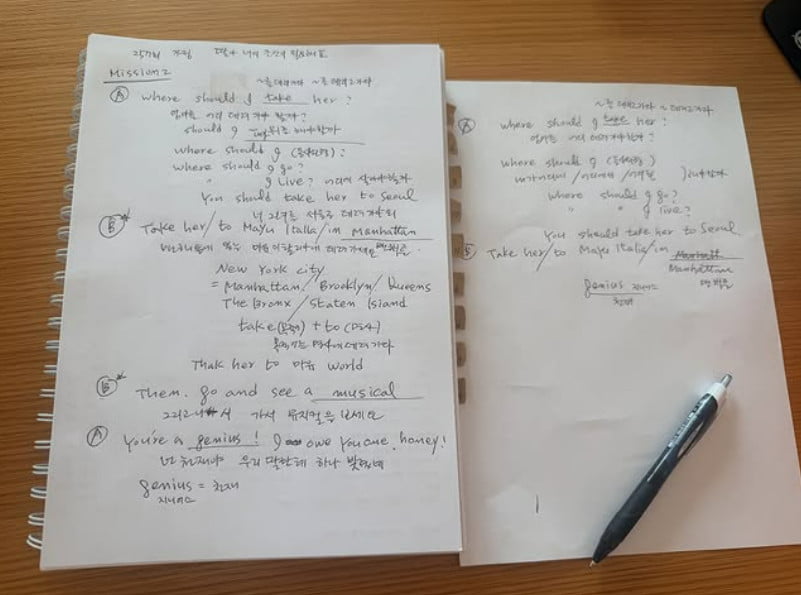 257회
Mission 2
~를 데려가다 ~를 데리고가다
Ⓐ where should I take her?
엄마를 어디 데려가야 할까?
should I
where should I (동사원형)?
where should I go?
" I live? 어디에 살아야할까
You should take her to Seoul
너 그녀를 서울로 데려가야해
Ⓑ* Take her/to Mayu Italla/in Manhattan
맨하튼에 있는
New York city
= Manhattan/Brooklyn/Queens
The Bronx/Staten Island
take(목적) + to (장소)
목적 장소에 데려가다
Thak her to 마유 world
Ⓑ* Them. go and see a musical
그리고나서 가서 뮤지컬을 보세요
Ⓐ You're a genius! I owe you one, honey!
넌 천재야 우리 딸한테 하나 빚졌네
genius = 천재
지니어스
~를 데려가다 ~ 데려고가다
Ⓐ where should I take her?
엄마를 어디 데려가야할까?
where should I (동사원형)
where should I go?
" " I live?
You should take her to Seoul
Ⓑ Take her/to Mayu Italia/in
Manhattan
genius 지니어스
천재